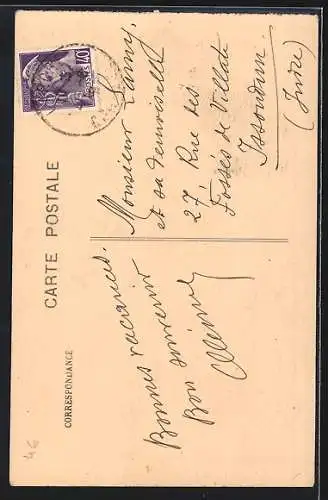 CARTE POSTALE
CORRESPONDANCE
Bonnes vacances.
Bon souvenir
Monsieur
et sa demoiselle
27 Rue des
Fossés de Villatte
Issoudun
(Indre)
POSTES 40
46